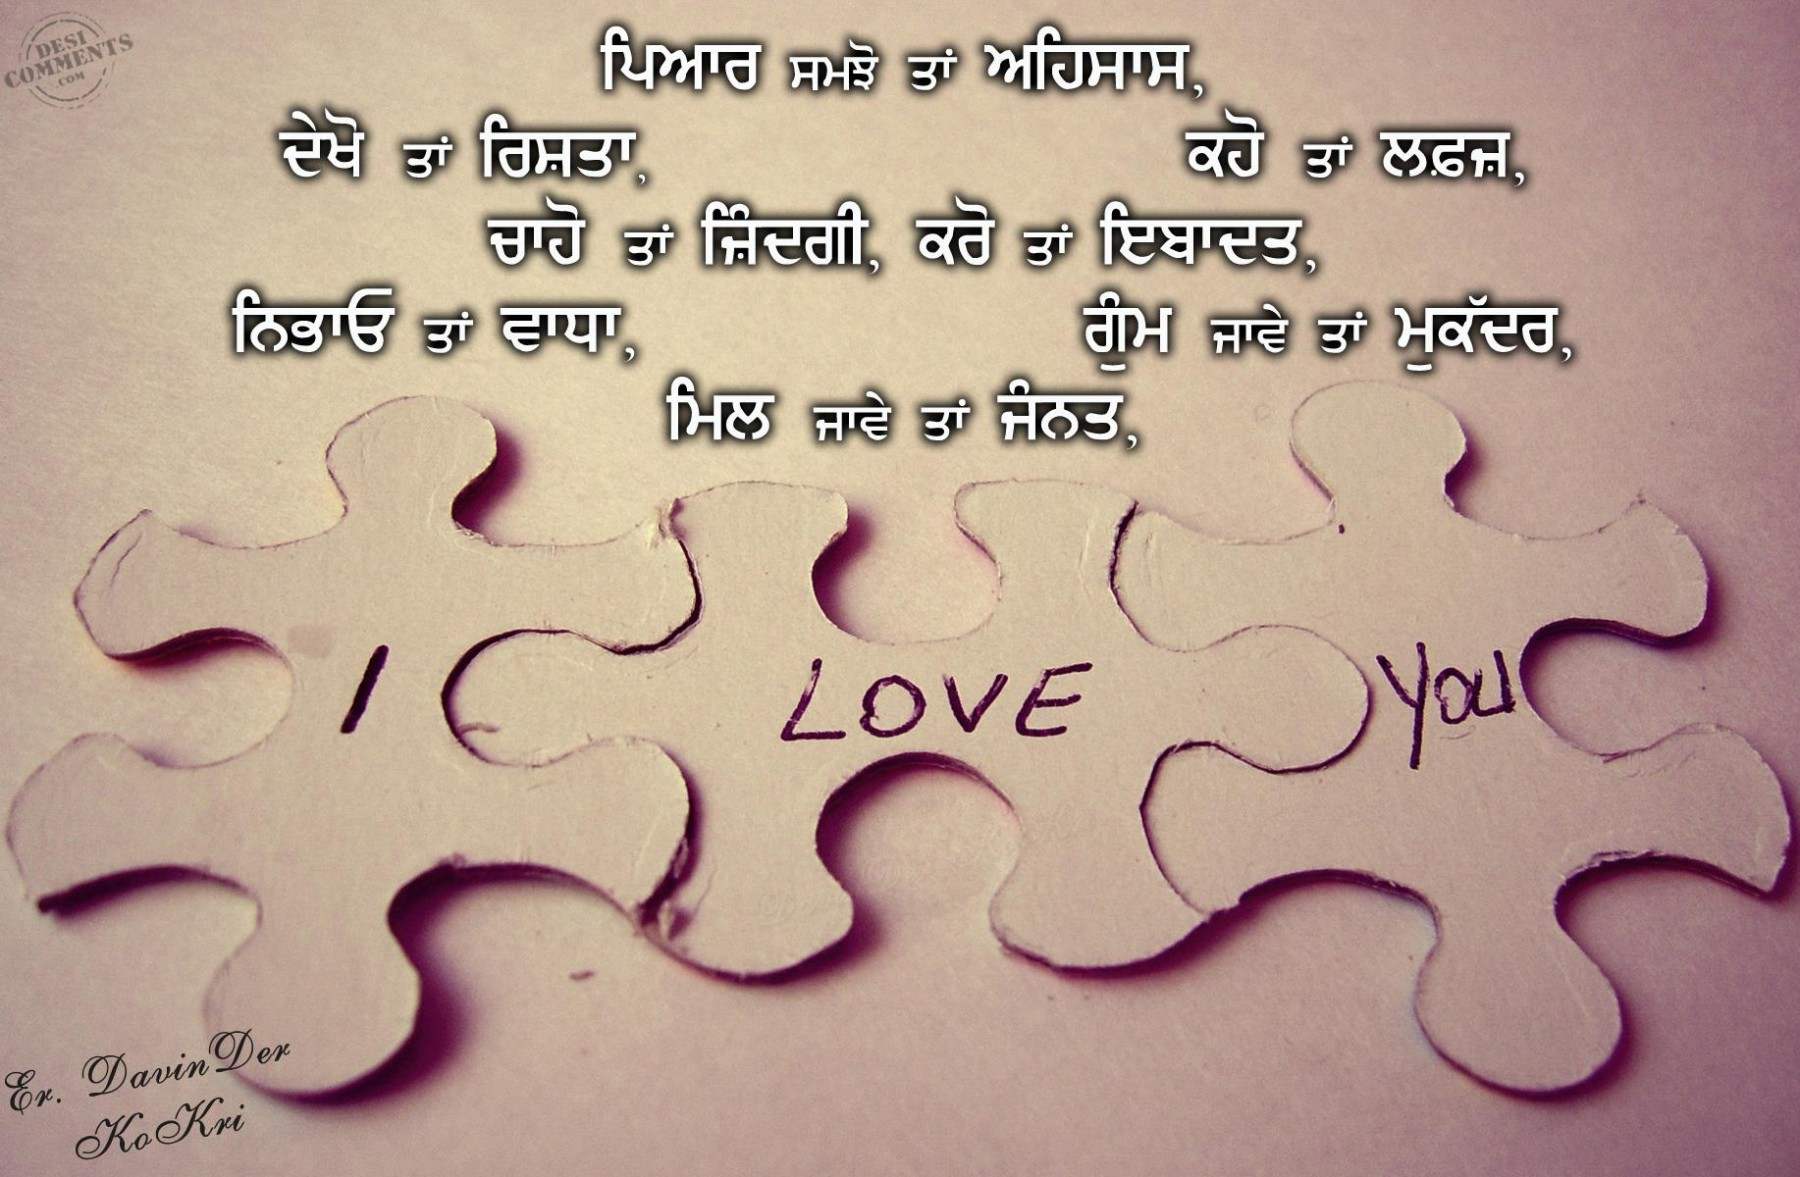 DESI
COMMENTS
.COM
ਪਿਆਰ ਸਮਝੋ ਤਾਂ ਅਹਿਸਾਸ,
ਦੇਖੋ ਤਾਂ ਰਿਸ਼ਤਾ, ਕਹੋ ਤਾਂ ਲਫ਼ਜ਼,
ਚਾਹੋ ਤਾਂ ਜ਼ਿੰਦਗੀ, ਕਰੋ ਤਾਂ ਇਬਾਦਤ,
ਨਿਭਾਓ ਤਾਂ ਵਾਧਾ, ਗੁੰਮ ਜਾਵੇ ਤਾਂ ਮੁਕੱਦਰ,
ਮਿਲ ਜਾਵੇ ਤਾਂ ਜੰਨਤ,
I LOVE YOU
Er. DavinDer
KoKri